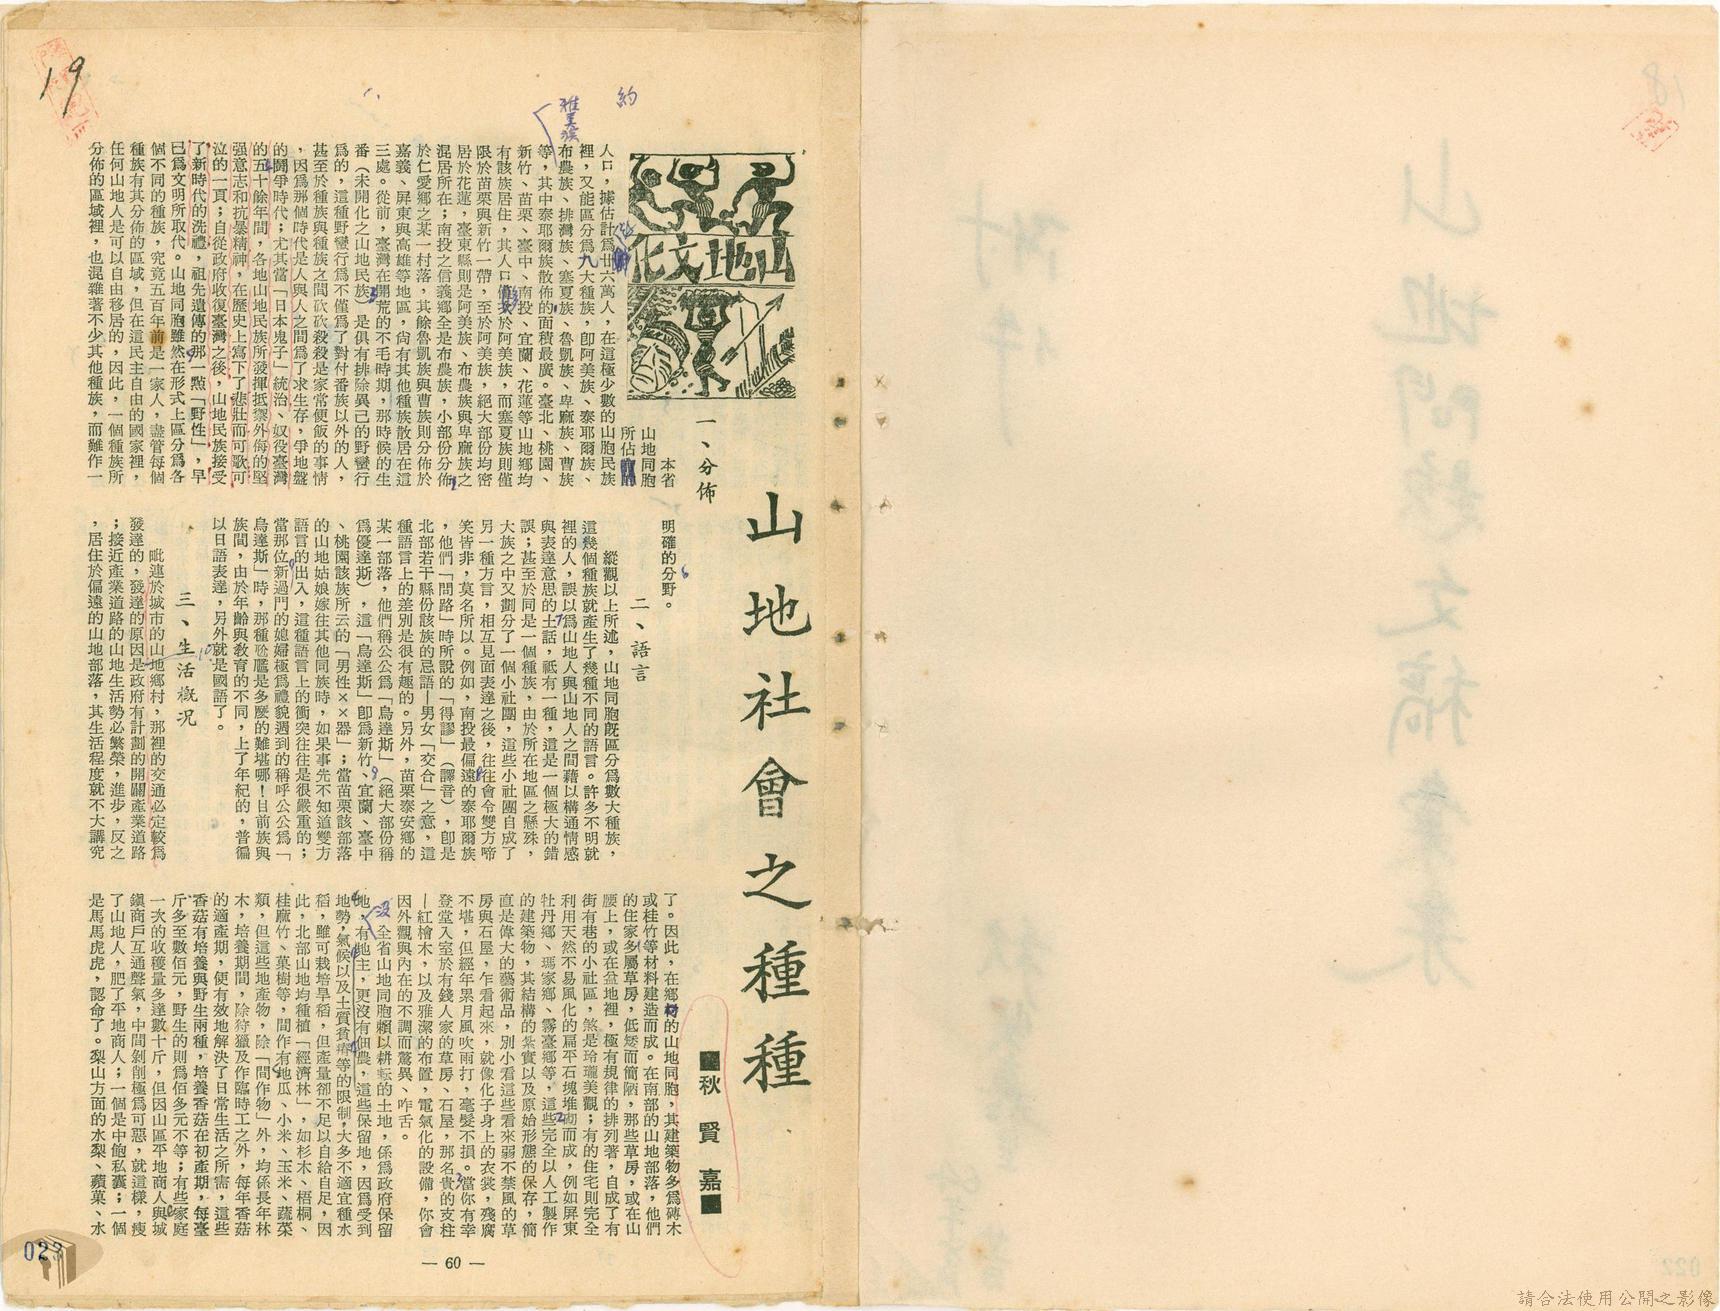 19
約
雅美族
山地文化
山地社會之種種
秋賢嘉
一、分佈
本省
山地同胞
所佔
人口，據估計爲廿六萬人，在這極少數的山胞民族
裡，又能區分爲九大種族，卽阿美族、泰耶爾族、
布農族、排灣族、塞夏族、魯凱族、卑麻族、曹族
等，其中泰耶爾族散佈的面積最廣。臺北、桃園、
新竹、苗栗、臺中、南投、宜蘭、花蓮等山地鄉均
有該族居住，其人口僅於阿美族，而塞夏族則僅
限於苗栗與新竹一帶，至於阿美族，絕大部份均密
居於花蓮，臺東縣則是阿美族、布農族與卑麻族之
混居所在；南投之信義鄉全是布農族，小部份分佈
於仁愛鄉之某一村落，其餘魯凱族與曹族則分佈於
嘉義、屏東與高雄等地區，尙有其他種族散居在這
三處。從前，臺灣在開荒的不毛時期，那時候的生
番（未開化之山地民族）是俱有排除異己的野蠻行
爲的，這種野蠻行爲不僅爲了對付番族以外的人，
甚至於種族與種族之間砍砍殺殺是家常便飯的事情
，因爲那個時代是人與人之間爲了求生存，爭地盤
的鬪爭時代；尤其當「日本鬼子」統治、奴役臺灣
的五十餘年間，各地山地民族所發揮抵禦外侮的堅
强意志和抗暴精神，在歷史上寫下了悲壯而可歌可
泣的一頁；自從政府收復臺灣之後，山地民族接受
了新時代的洗禮，祖先遺傳的那一點「野性」，早
已爲文明所取代。山地同胞雖然在形式上區分爲各
個不同的種族，究竟五百年前是一家人，盡管每個
種族有其分佈的區域，但在這民主自由的國家裡，
任何山地人是可以自由移居的，因此，一個種族所
分佈的區域裡，也混雜著不少其他種族，而難作一
明確的分野。
二、語言
縱觀以上所述，山地同胞旣區分爲數大種族，
這幾個種族就產生了幾種不同的語言。許多不明就
裡的人，誤以爲山地人與山地人之間藉以構通情感
與表達意思的土話，祇有一種，這是一個極大的錯
誤；甚至於同是一個種族，由於所在地區之懸殊，
大族之中又劃分了一個小社團，這些小社團自成了
另一種方言，相互見面表達之後，往往會令雙方啼
笑皆非，莫名所以。例如，南投最偏遠的泰耶爾族
，他們「問路」時所說的「得謬」（譯音），卽是
北部若干縣份該族的忌語—男女「交合」之意，這
種語言上的差別是很有趣的。另外，苗栗泰安鄉的
某一部落，他們稱公公爲「烏達斯」（絕大部份稱
爲優達斯），這「烏達斯」卽爲新竹、宜蘭、臺中
、桃園該族所云的「男性××器」；當苗栗該部落
的山地姑娘嫁往其他同族時，如果事先不知道雙方
語言的出入，這種語言上的衝突往往是很嚴重的；
當那位新過門的媳婦極爲禮貌遇到的稱呼公公爲「
烏達斯」時，那種尷尬是多麼的難堪哪！目前族與
族間，由於年齡與敎育的不同，上了年紀的，普徧
以日語表達，另外就是國語了。
三、生活槪況
毗連於城市的山地鄉村，那裡的交通必定較爲
發達的，發達的原因是政府有計劃的開闢產業道路
；接近產業道路的山地生活勢必繁榮，進步，反之
，居住於偏遠的山地部落，其生活程度就不大講究
了。因此，在鄉的山地同胞，其建築物多爲磚木
或桂竹等材料建造而成。在南部的山地部落，他們
的住家多屬草房，低矮而簡陋，那些草房，或在山
腰上，或在盆地裡，極有規律的排列著，自成了有
街有巷的小社區，煞是玲瓏美觀；有的住宅則完全
利用天然不易風化的扁平石塊堆砌而成，例如屏東
牡丹鄉、瑪家鄉、霧臺鄉等，這些完全以人工製作
的建築物，其結構的紮實以及原始形態的保存，簡
直是偉大的藝術品，別小看這些看來弱不禁風的草
房與石屋，乍看起來，就像化子身上的衣裳，殘腐
不堪，但經年累月風吹雨打，毫髮不損。當你有幸
登堂入室於有錢人家的草房、石屋，那名貴的支柱
—紅檜木，以及雅潔的布置，電氣化的設備，你會
因外觀與內在的不調而驚異、咋舌。
全省山地同胞賴以耕耘的土地，係爲政府保留
地，沒有地主，更沒有佃農，這些保留地，因爲受到
地勢，氣候以及土質貧瘠等的限制，大多不適宜種水
稻，雖可栽培旱稻，但產量卻不足以自給自足，因
此，北部山地均種植「經濟林」，如杉木、梧桐、
桂麻竹、菓樹等，間作有地瓜、小米、玉米、蔬菜
類，但這些地產物，除「間作物」外，均係長年林
木，培養期間，除狩獵及作臨時工之外，每年香菇
的適產期，便有效地解決了日常生活之所需，這些
香菇有培養與野生兩種，培養香菇在初產期，每臺
斤多至數佰元，野生的則爲佰多元不等；有些家庭
一次的收穫量多達數十斤，但因山區平地商人與城
鎭商戶互通聲氣，中間剝削極爲可惡，就這樣，瘦
了山地人，肥了平地商人；一個是中飽私囊；一個
是馬馬虎虎，認命了。梨山方面的水梨、蘋菓、水
— 60 —
023
18
山地問題文稿業案
附件
022
請合法使用公開之影像